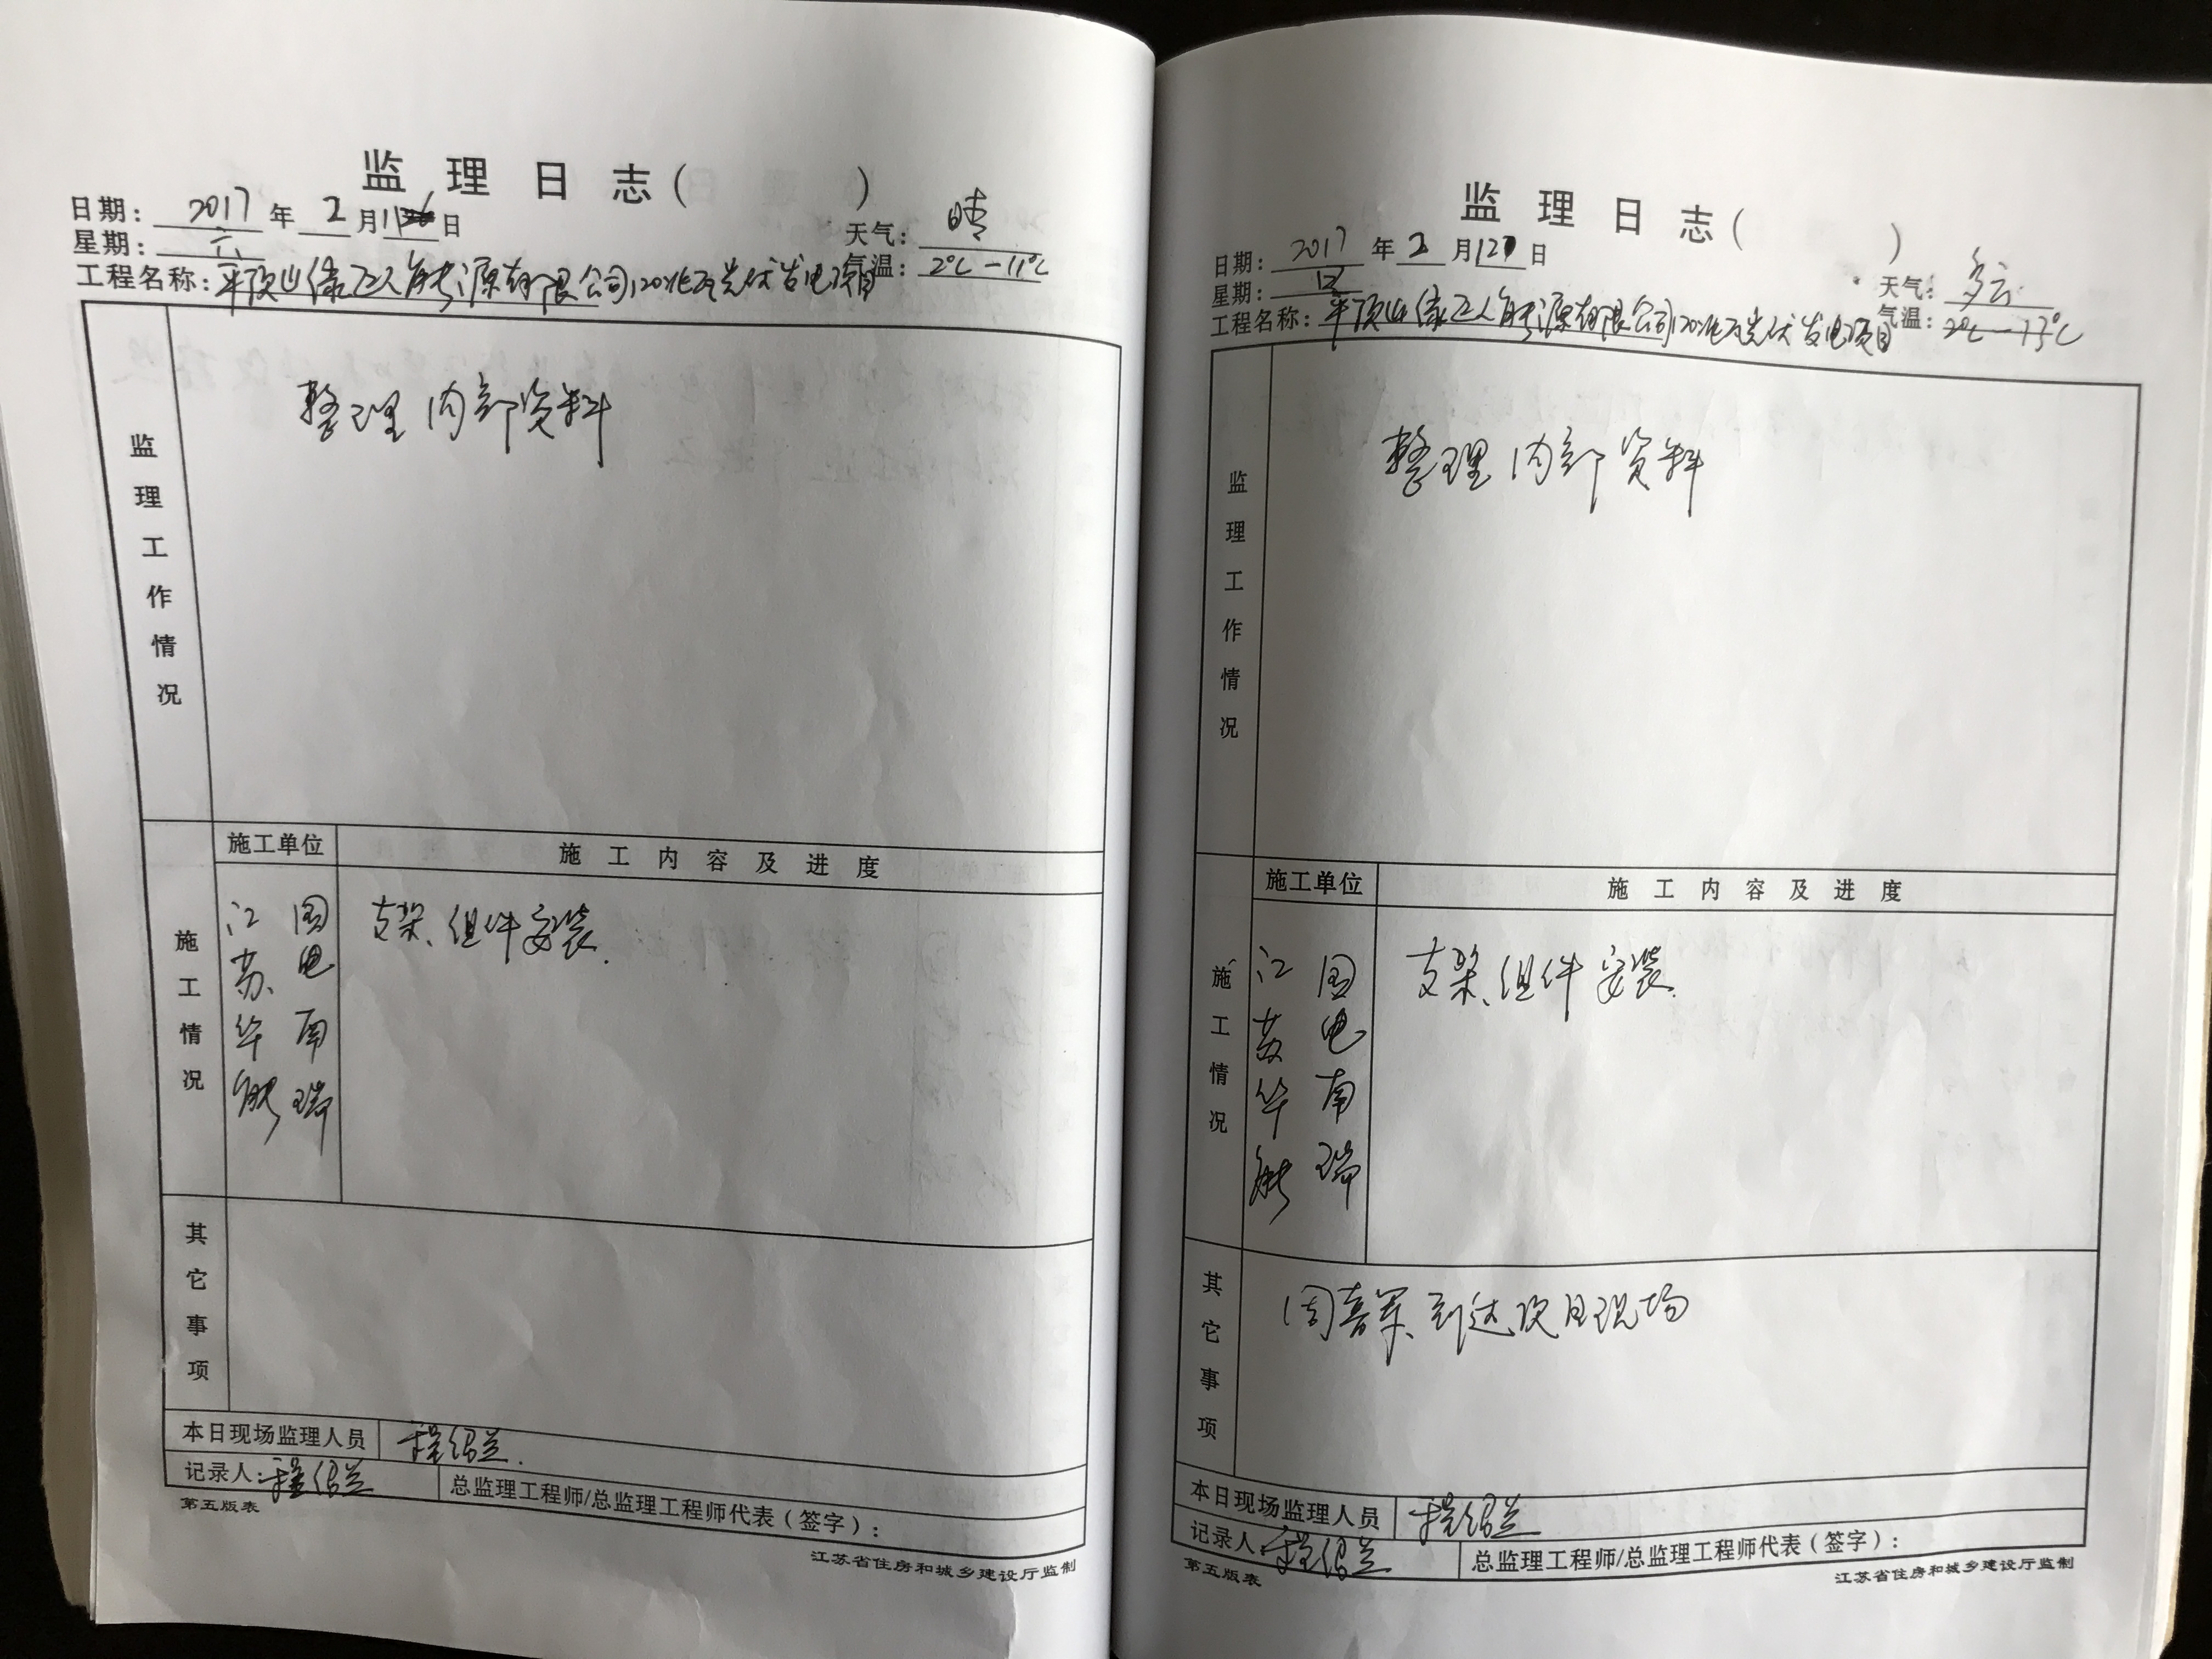 监理日志（ ）
日期：2017年2月11日
星期：六
天气：晴
工程名称：平顶山绿 能源有限公司120兆瓦光伏发电项目
气温：2℃-11℃
监理工作情况
整理内部资料
施工情况
施工单位
施工内容及进度
江苏华能
国电南瑞
支架、组件安装.
其它事项
本日现场监理人员 程绍兰.
记录人：程绍兰
总监理工程师/总监理工程师代表（签字）：
第五版表
江苏省住房和城乡建设厅监制
监理日志（ ）
日期：2017年2月12日
星期：日
天气：多云
工程名称：平顶山绿 能源有限公司120兆瓦光伏发电项目
气温：2℃-13℃
监理工作情况
整理内部资料
施工情况
施工单位
施工内容及进度
江苏华能
国电南瑞
支架、组件安装.
其它事项
周喜军到达项目现场
本日现场监理人员 程绍兰
记录人：程绍兰
总监理工程师/总监理工程师代表（签字）：
第五版表
江苏省住房和城乡建设厅监制